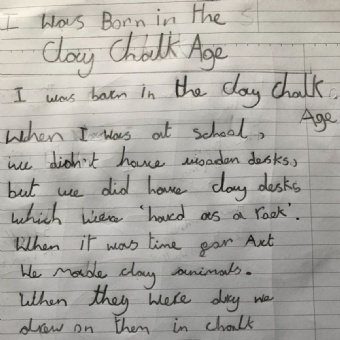 I was Born in the
Clay Chalk Age
I was born in the clay chalk
Age
When I was at school,
we didn't have wooden desks,
but we did have clay desks
which were 'hard as a rock'.
When it was time for Art
We made clay animals.
When they were dry we
drew on them in chalk